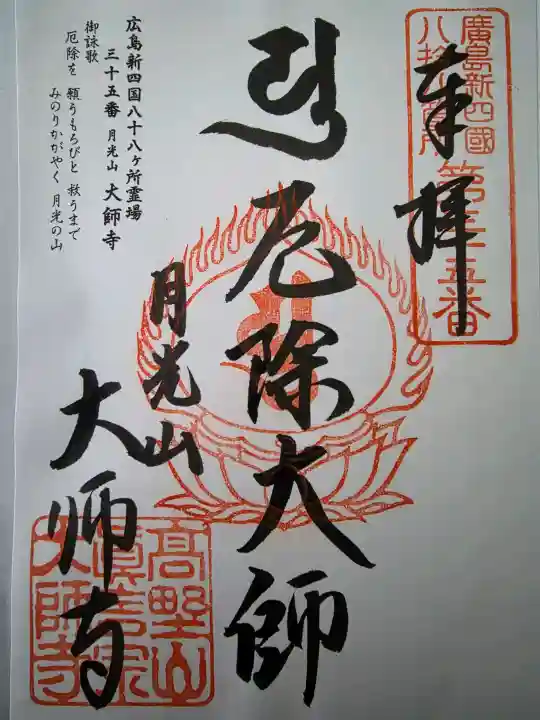 奉拝
廣島新四國
八拾八ヶ所
第三十五番
厄除大師
月光山
大師寺
広島新四国八十八ヶ所霊場
三十五番 月光山 大師寺
御詠歌
厄除を 願うもろびと 救うまで
みのりかがやく 月光の山
高野山
真言宗
大師寺